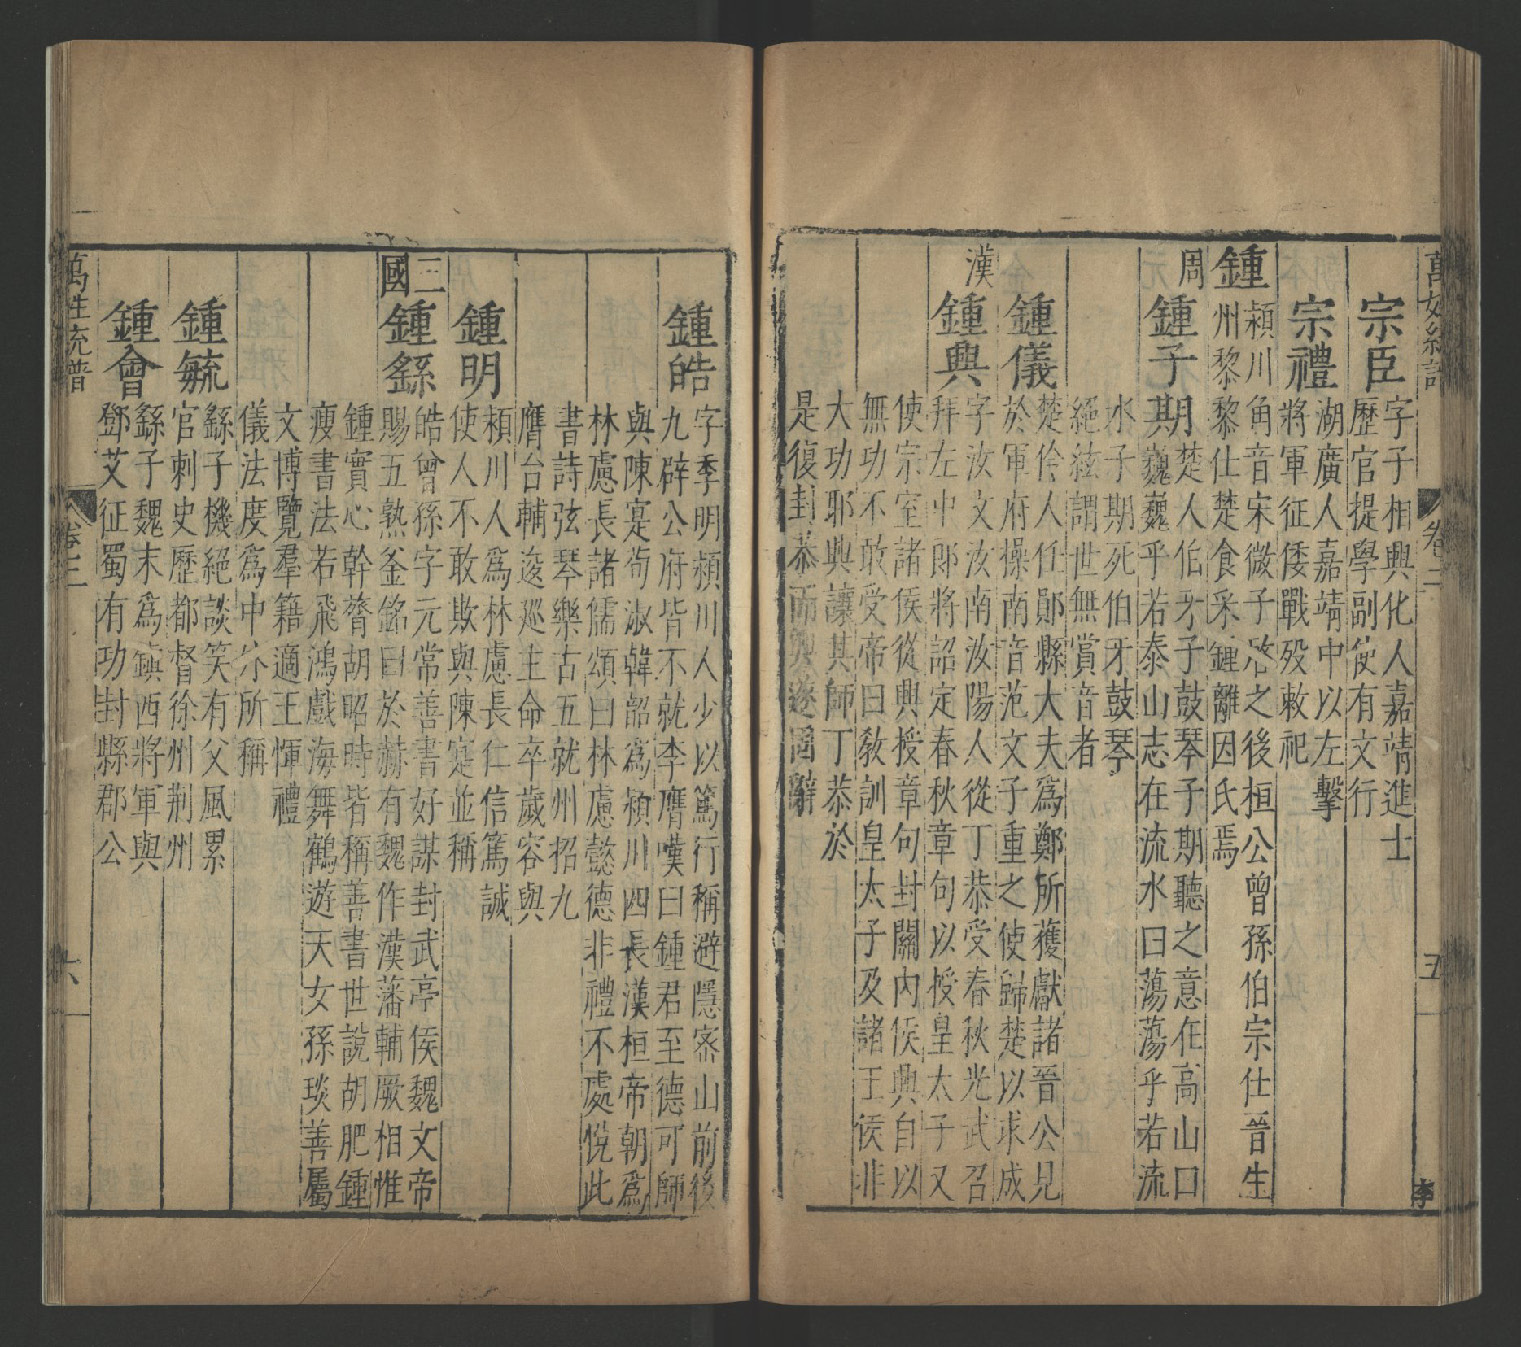 萬姓統譜 卷二 五 李
宗臣 字子相興化人嘉靖進士
歷官提學副使有文行
宗禮 湖廣人嘉靖中以左擊
將軍征倭戰歿敕祀
鍾 潁川角音宋微子之後桓公曾孫伯宗仕晉生
州黎黎仕楚食采鍾離因氏焉
周 鍾子期 楚人伯牙子鼓琴子期聽之意在高山口
巍巍乎若泰山志在流水曰蕩蕩乎若流
水子期死伯牙鼓琴
絕絃謂世無賞音者
鍾儀 楚伶人任鄖縣大夫為鄭所獲獻諸晉公見
於軍府操南音范文子重之使歸楚以求成
漢 鍾興 字汝文汝南汝陽人從丁恭受春秋光武召
拜左中郎將詔定春秋章句以授皇太子又
使宗室諸侯從興授章句封關內侯興自以
無功不敢受帝曰教訓皇太子及諸王侯非
大功耶興讓其師丁恭於
是復封恭而興遂固辭
鍾皓 字季明潁川人少以篤行稱避隱密山前後
九辟公府皆不就李膺嘆曰鍾君至德可師
與陳寔荀淑韓韶為潁川四長漢桓帝朝為
林慮長諸儒頌曰林慮懿德非禮不處悅此
書詩弦琴樂古五就州招九
膺台輔逡巡王命卒歲容與
鍾明 潁川人為林慮長仁信篤誠
使人不敢欺與陳寔並稱
三國 鍾繇 皓曾孫字元常善書好謀封武亭侯魏文帝
賜五熟釜銘曰於赫有魏作漢藩輔厥相惟
鍾實心幹膂胡昭時皆稱善書世說胡肥鍾
瘦書法若飛鴻戲海舞鶴遊天女孫琰善屬
文博覽羣籍適王惲禮
儀法度為中外所稱
鍾毓 繇子機絕談笑有父風累
官刺史歷都督徐州荊州
鍾會 繇子魏末為鎮西將軍與
鄧艾征蜀有功封縣郡公
萬姓統譜 卷二 六